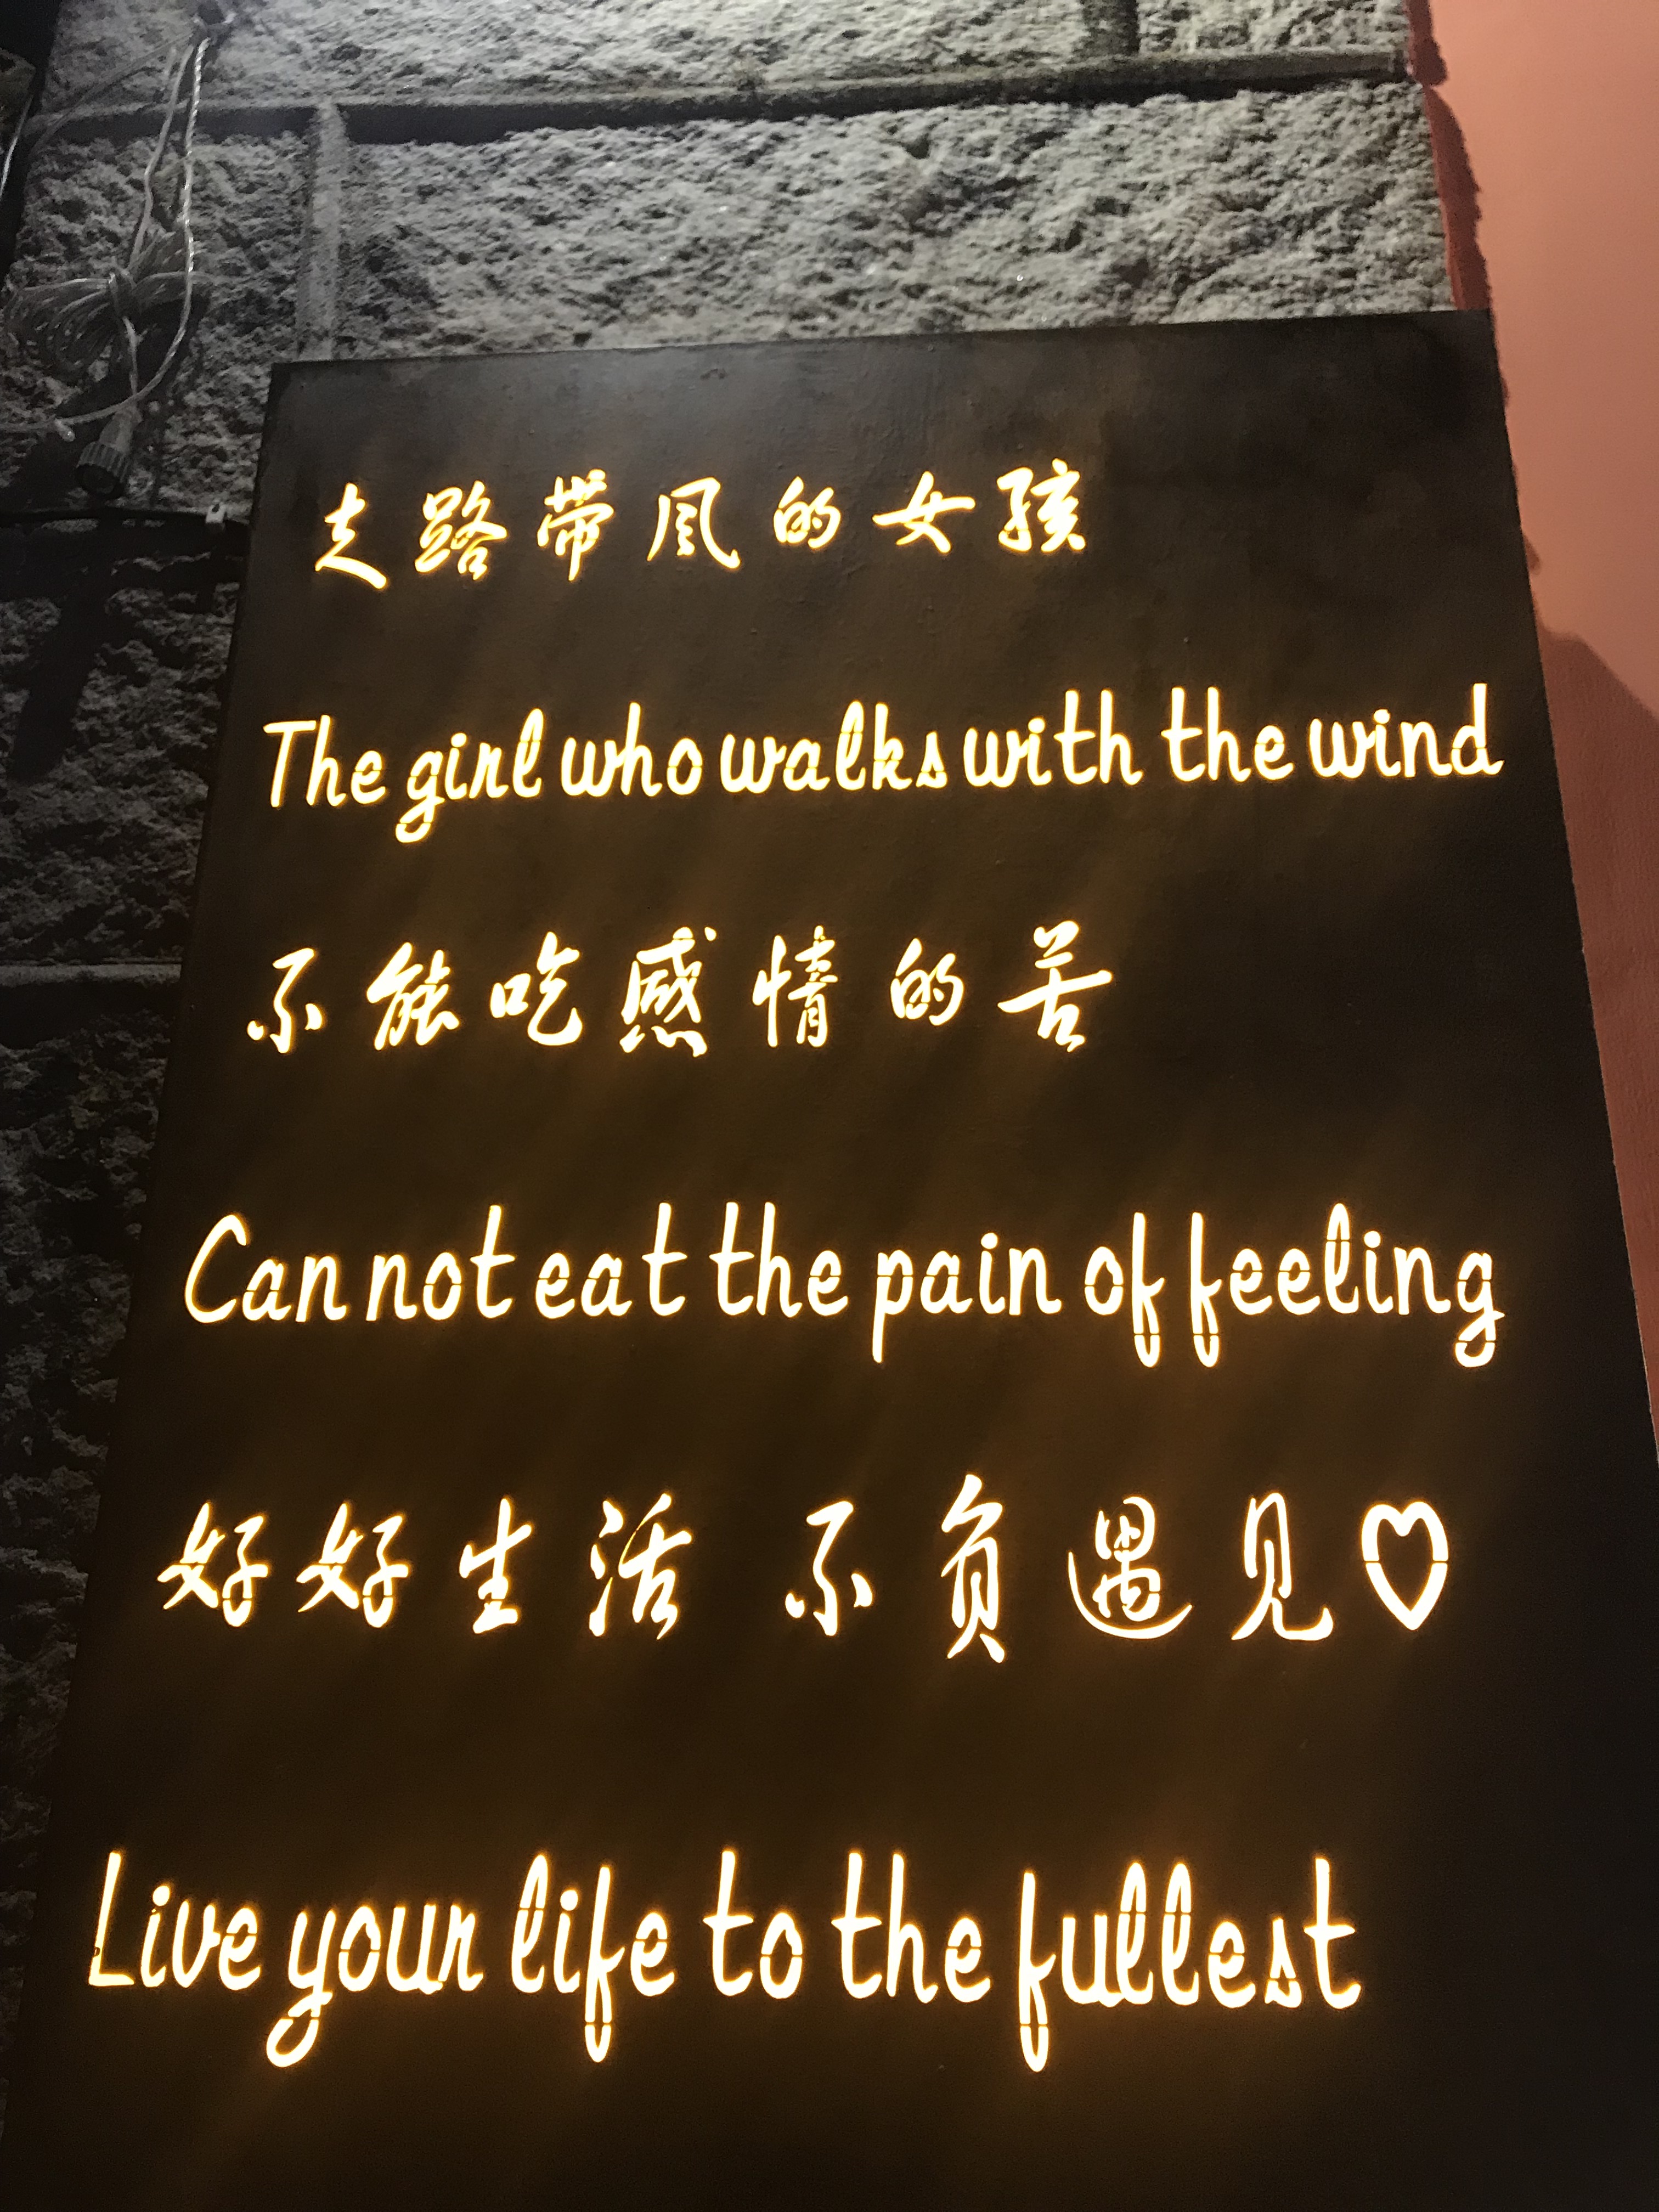 走路带风的女孩
The girl who walks with the wind
不能吃感情的苦
Can not eat the pain of feeling
好好生活 不负遇见♡
Live your life to the fullest